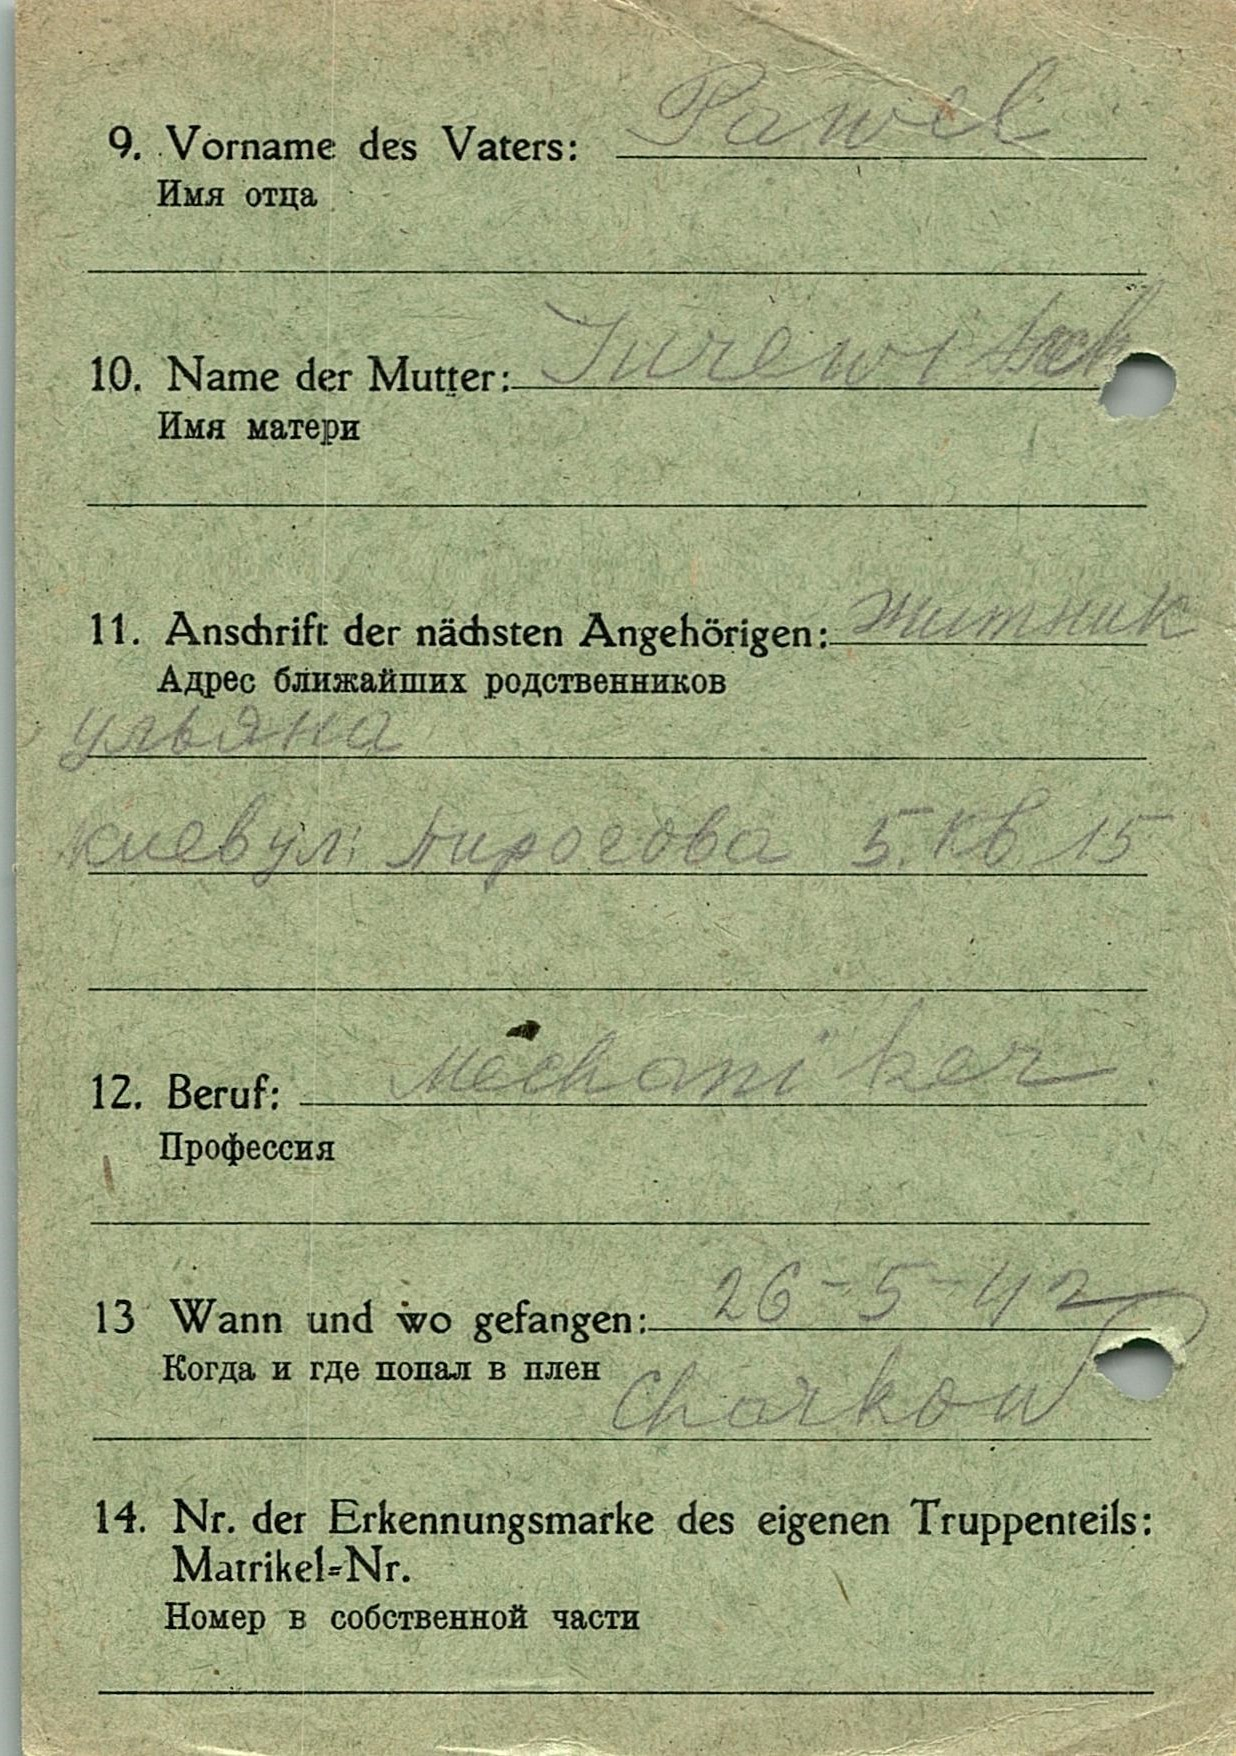 9. Vorname des Vaters: Pawel
Имя отца
10. Name der Mutter: Jurewitsch
Имя матери
11. Anschrift der nächsten Angehörigen: Житник
Адрес ближайших родственников
Ульяна
Киев ул. Пирогова 5. кв 15
12. Beruf: Mechaniker
Профессия
13 Wann und wo gefangen: 26-5-42
Когда и где попал в плен
Charkow
14. Nr. der Erkennungsmarke des eigenen Truppenteils:
Matrikel-Nr.
Номер в собственной части